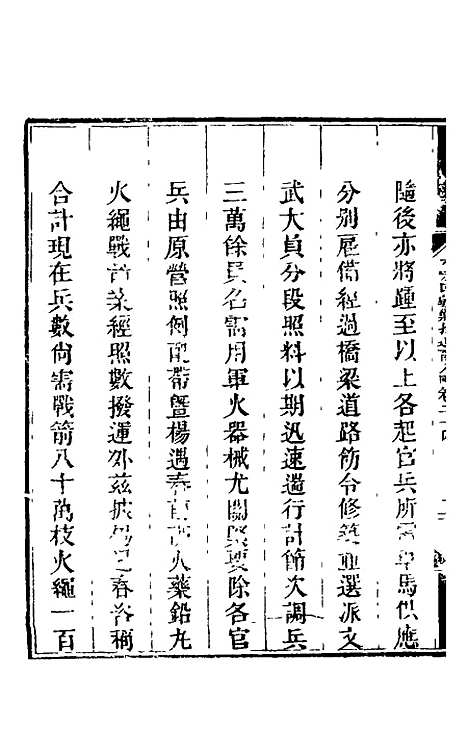 隨後亦將踵至以上各起官兵所需車馬供應
分別雇備經過橋梁道路飭令修築並選派文
武大員分段照料以期迅速遄行計節次調兵
三萬餘員名需用軍火器械尤關緊要除各官
兵由原營照例配帶暨楊遇春火藥鉛丸
火繩戰箭業經照數撥運外茲據楊遇春咨稱
合計現在兵數尚需戰箭八十萬枝火繩一百